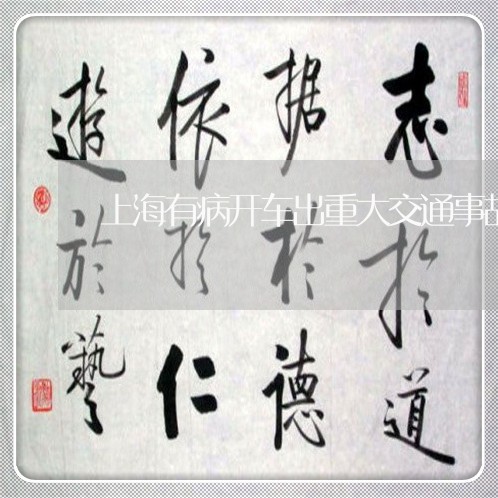 志於道
据於德
依於仁
遊於藝
上海有病开车出重大交通事故